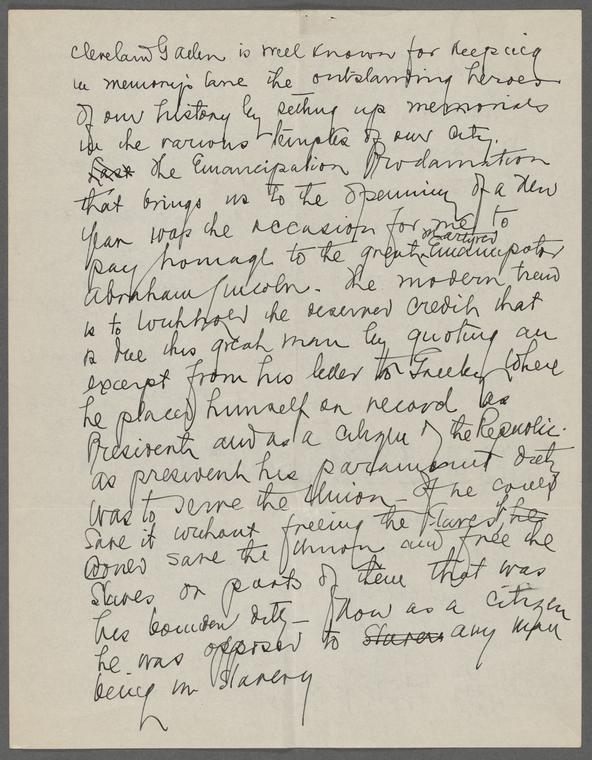 Cleveland G Allen is well known for keeping
in memory's lane the outstanding heroes
of our history by setting up memorials
in the various temples of our city.
the Emancipation Proclamation
that brings us to the openning of a New
Year was the occasion for me to
pay homage to the great martyred Emancipator
Abraham Lincoln. The modern trend
is to withhold the deserved credit that
is due this great man by quoting an
excerpt from his letter to Greeley where
he placed himself on record as
President and as a citizen of the Republic.
as president his paramount duty
was to serve the Union – If he could
save it without freeing the slaves or he
could save the Union and free the
slaves or part of them that was
his bounden duty – Now as a citizen
he was opposed to slaves any man
being in slavery